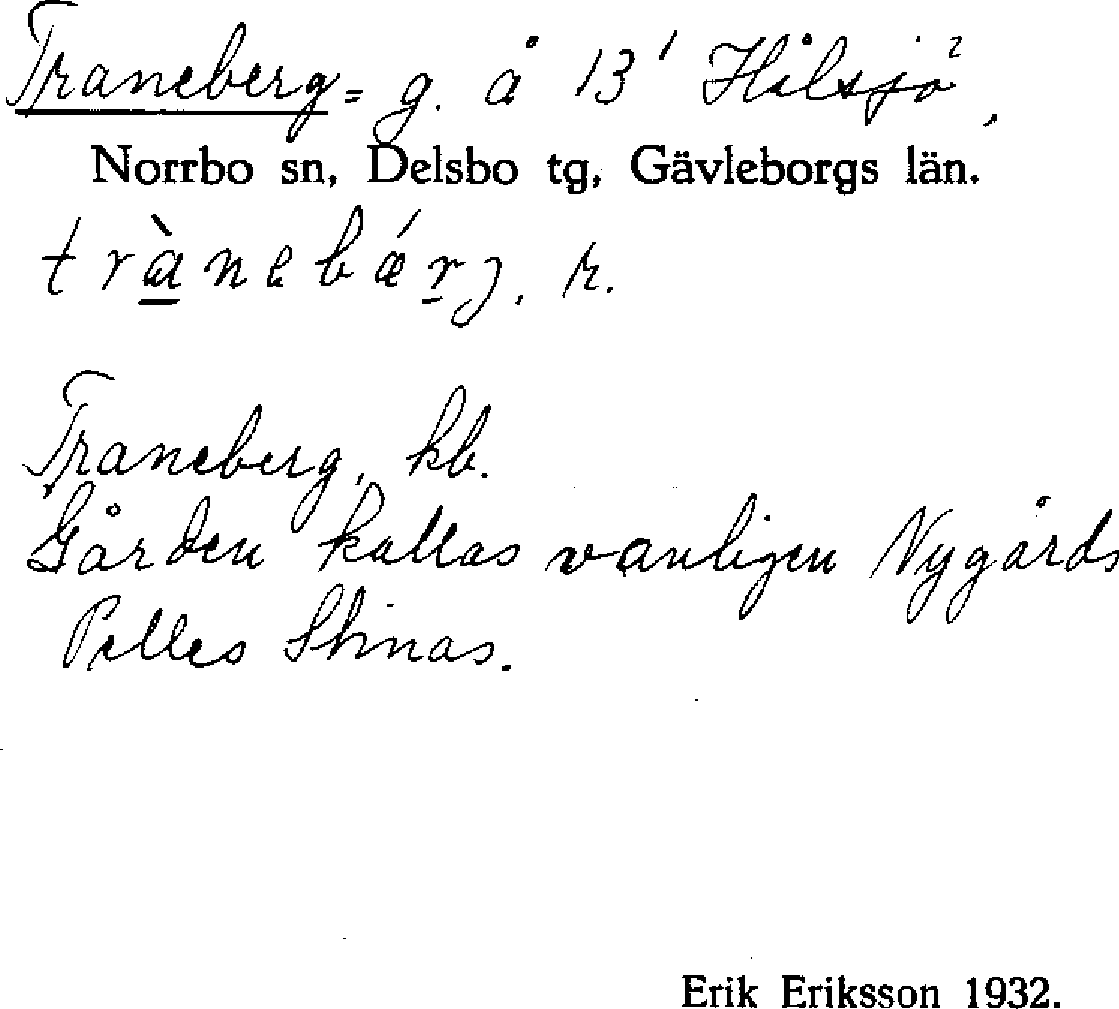 Traneberg = g. å 13¹ Hålsjö²,
Norrbo sn, Delsbo tg, Gävleborgs län.
trànebǽrj, r.
Traneberg, kb.
Gården kallas vanligen Nygårds
Pelles Stinas.
Erik Eriksson 1932.